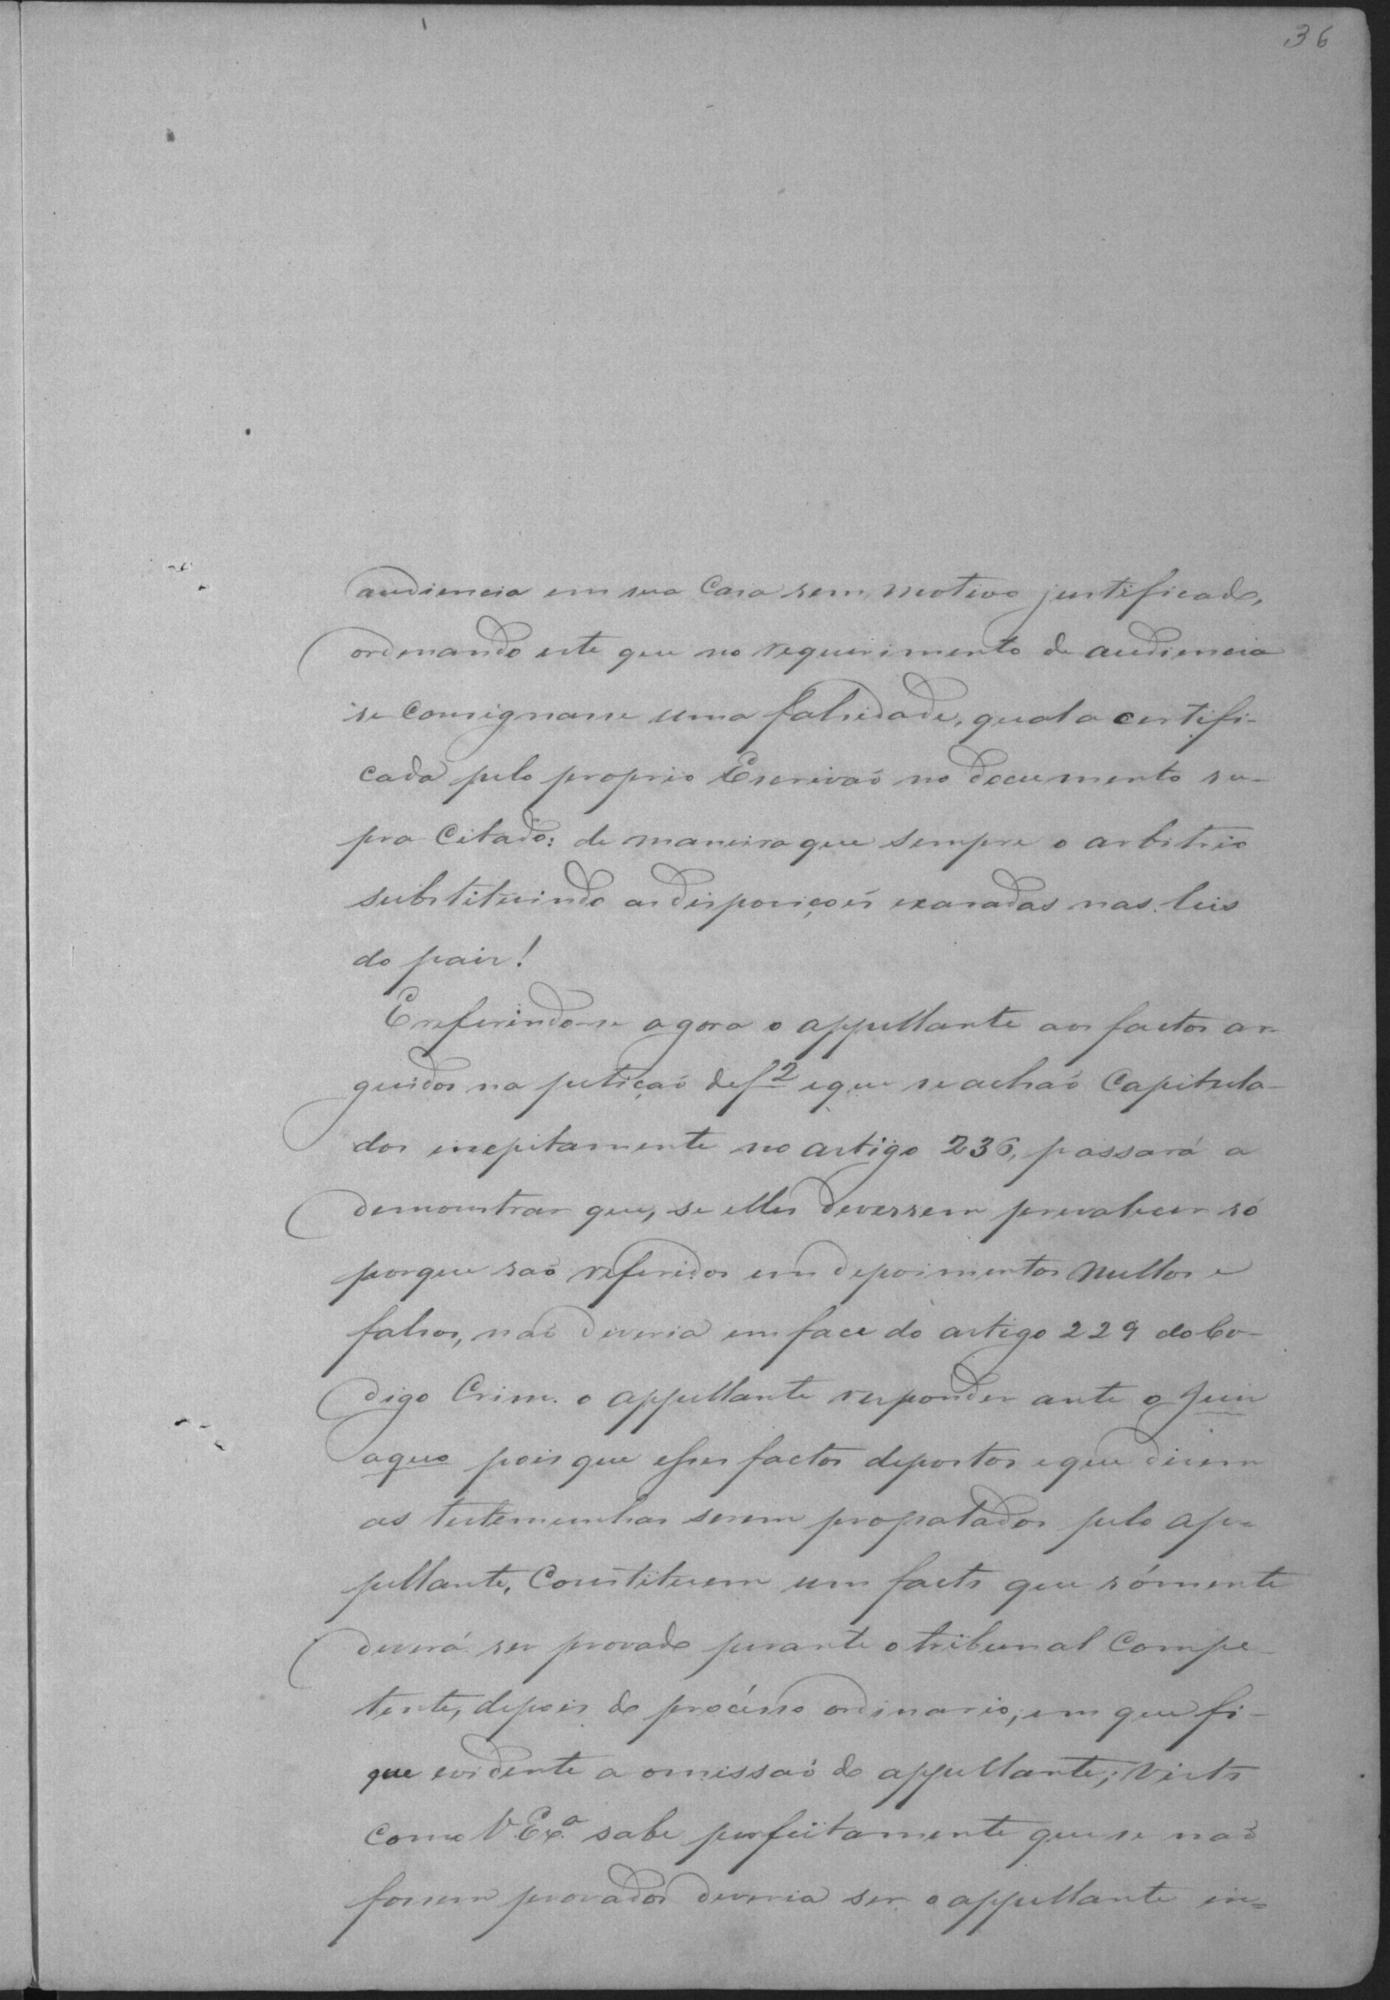 36
audiencia em sua Casa sem motivo justificado,
ordenando este que no requerimento de audiencia
se consignasse uma falsidade, qual a certifi-
cada pelo proprio Escrivaõ no documento su-
pra Citado: de maneira que sempre o arbitrio
substituindo as disposiçoẽs exaradas nas leis
do paiz!
E referindo-se agora o appellante aos factos ar-
guidos na petiçaõ de f 2 e que se achaõ Capitula-
dos ineptamente no artigo 236, passará a
demonstrar que, se elles devessem prevalecer só
porque saõ referidos em depoimentos nullos e
falsos, naõ deveria em face do artigo 229 do Co-
digo Crim. o appellante responder ante o Juiz
aquo pois que esses factos depostos e que dizem
as testemunhas serem propalados pelo ap-
pellante, Constituem um facto que sómente
deverá ser provado perante o tribunal Compe-
tente, depois de procésso ordinario, em que fi-
que evidente a omissaõ do appellante; visto
como V. Exª. sabe perfeitamente que se naõ
fossem provados deveria ser o appellante in=